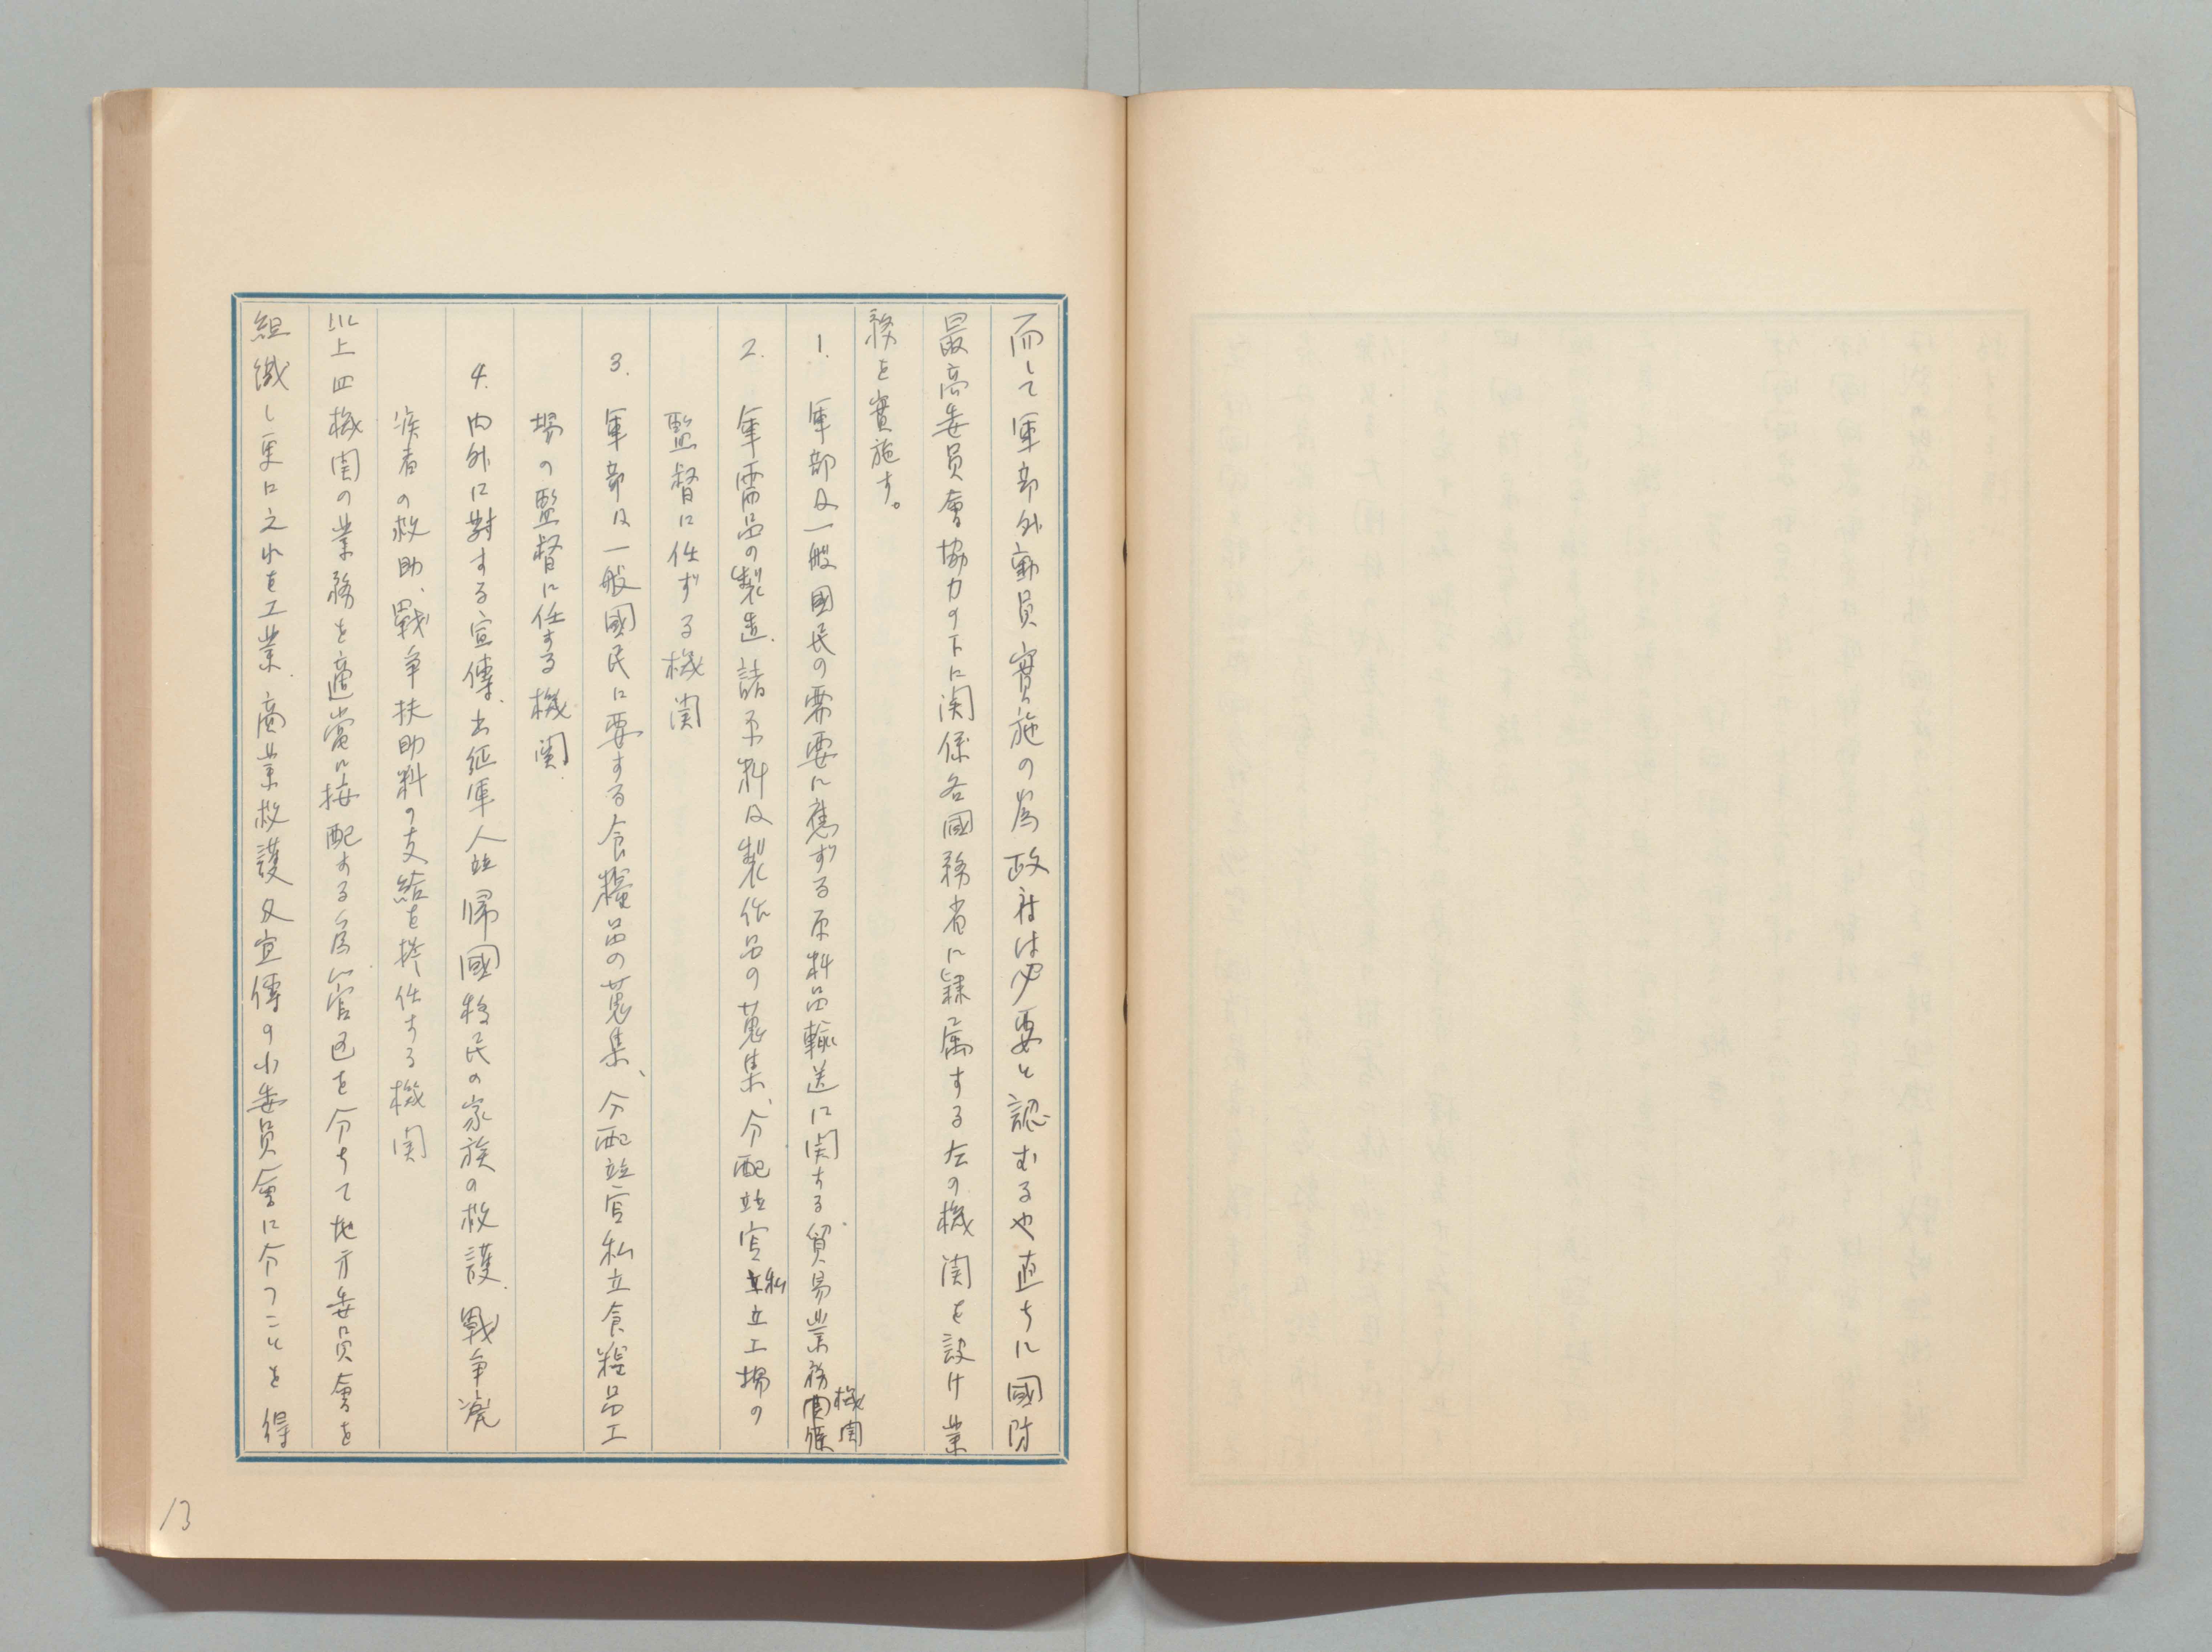 而して軍部外動員實施の為政府は必要と認むるや直ちに國防
最高委員會協力の下に関係各國務省に隷属する左の機関を設け業
務を實施す。
1. 軍部及一般國民の需要に應ずる原料品輸送に関する貿易業務機関
2. 軍需品の製造、諸原料及製作品の蒐集、分配並官私立工場の
監督に任ずる機関
3. 軍部及一般國民に要する食糧品の蒐集、分配並官私立食糧品工
場の監督に任する機関
4. 内外に對する宣傳、出征軍人並帰國移民の家族の救護、戰争廃
疾者の救助、戰争扶助料の支給を擔任する機関
以上四機関の業務を適當に按配する為管区を分ちて地方委員會を
組織し更に之れを工業、商業救護及宣傳の小委員會に分つことを得
13